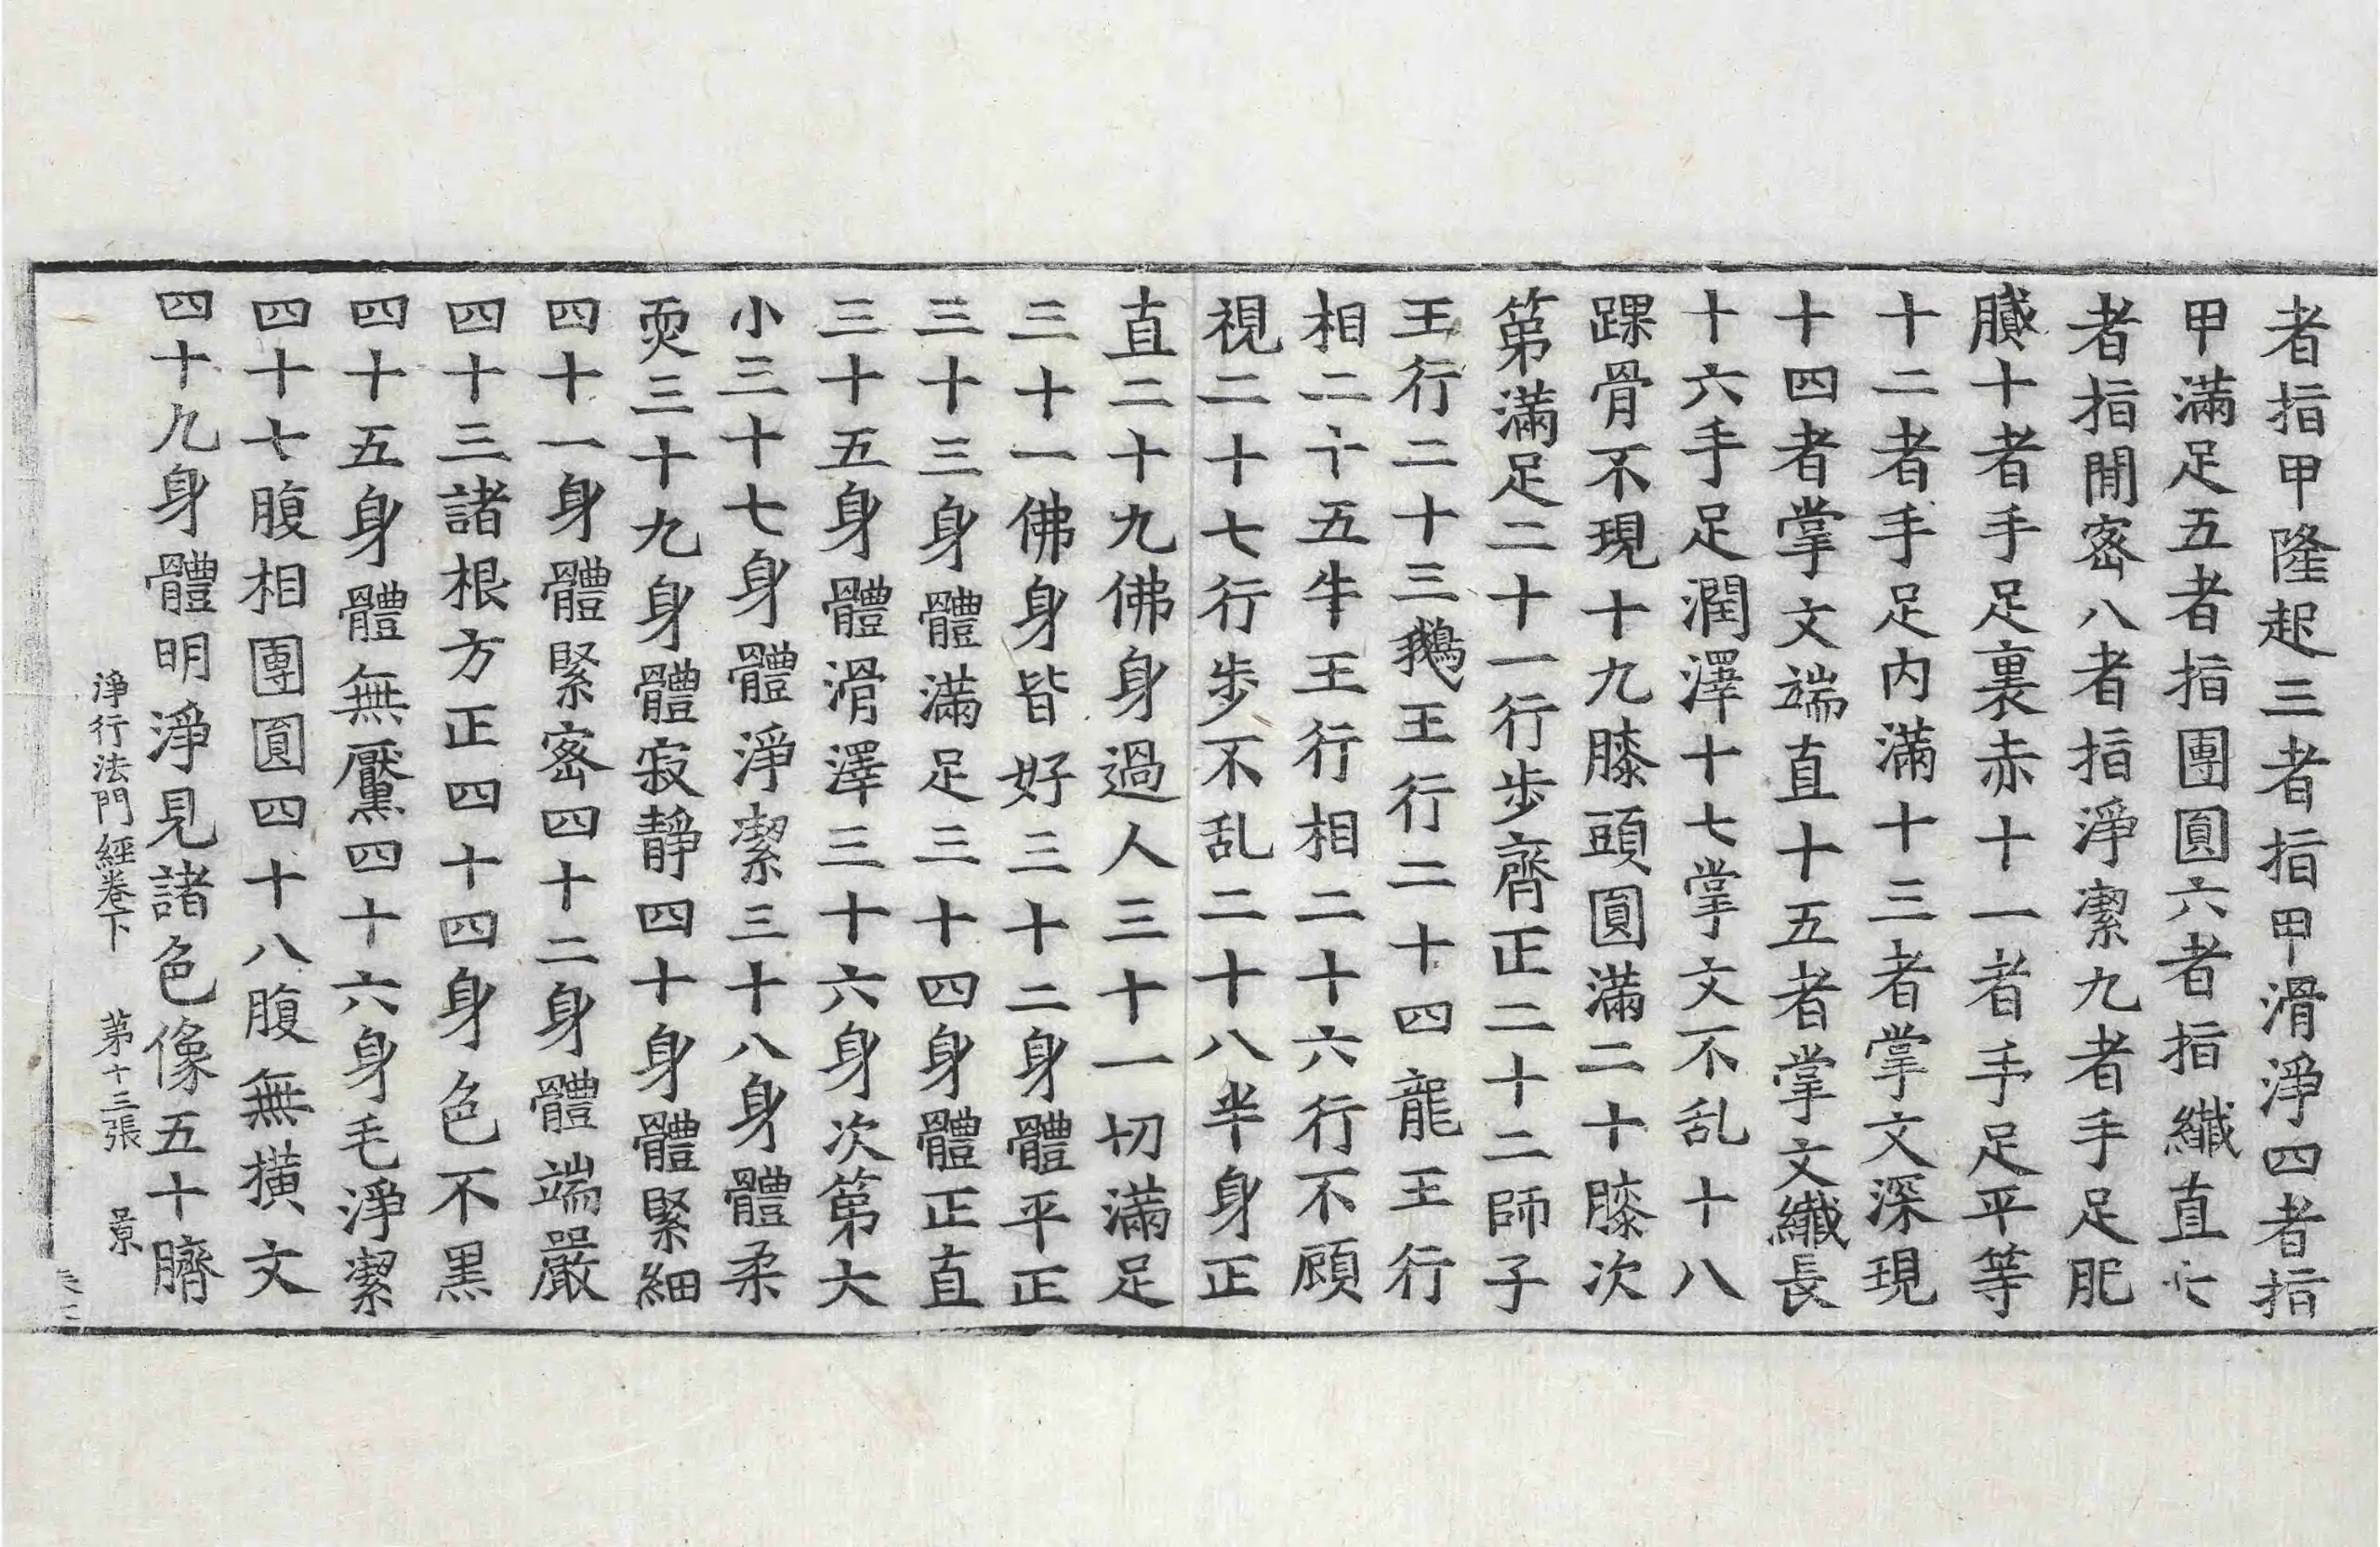 者指甲隆起三者指甲滑淨四者指
甲滿足五者指團圓六者指纖直七
者指閒密八者指淨潔九者手足肥
膩十者手足裏赤十一者手足平等
十二者手足内滿十三者掌文深現
十四者掌文端直十五者掌文纖長
十六手足潤澤十七掌文不乱十八
踝骨不現十九膝頭圓滿二十膝次
第滿足二十一行步齊正二十二師子
王行二十三鵝王行二十四龍王行
相二十五牛王行相二十六行不顧
視二十七行步不乱二十八半身正
直二十九佛身過人三十一切滿足
三十一佛身皆好三十二身體平正
三十三身體滿足三十四身體正直
三十五身體滑澤三十六身次第大
小三十七身體淨潔三十八身體柔
耎三十九身體寂靜四十身體緊細
四十一身體緊密四十二身體端嚴
四十三諸根方正四十四身色不黑
四十五身體無黶四十六身毛淨潔
四十七腹相團圓四十八腹無橫文
四十九身體明淨見諸色像五十臍
淨行法門經卷下 第十三張 景